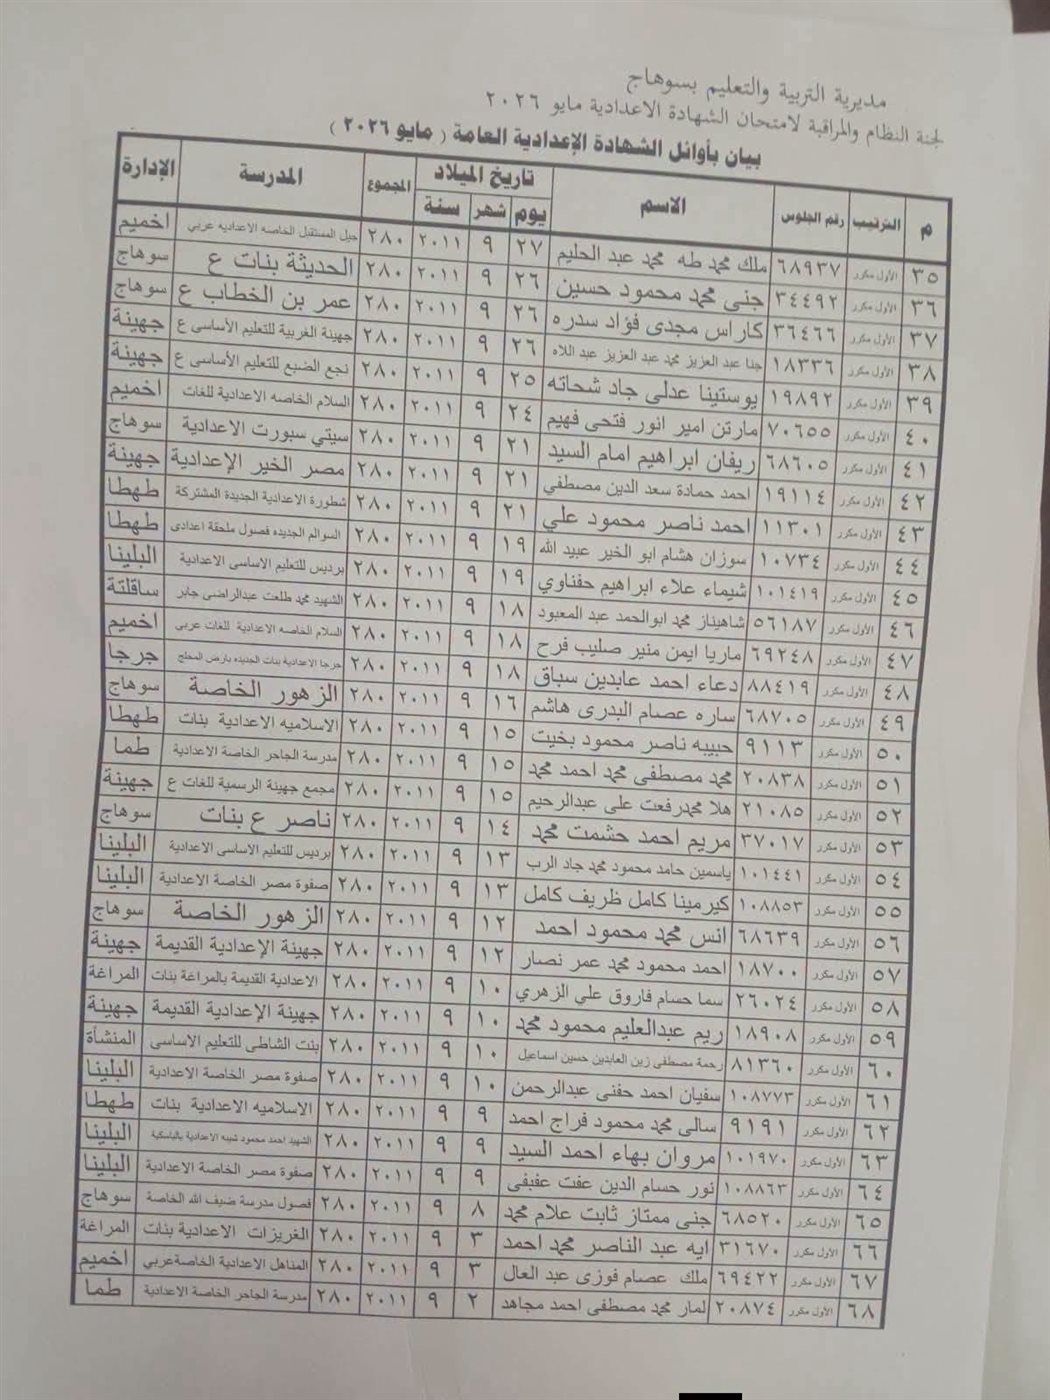 مديرية التربية والتعليم بسوهاج
لجنة النظام والمراقبة لامتحان الشهادة الاعدادية مايو ٢٠٢٦
بيان بأوائل الشهادة الإعدادية العامة ( مايو ٢٠٢٦ )
م الترتيب رقم الجلوس الاسم تاريخ الميلاد المجموع المدرسة الإدارة
يوم شهر سنة
٣٥ الأول مكرر ٦٨٩٣٧ ملك محمد طه محمد عبد الحليم ٢٧ ٩ ٢٠١١ ٢٨٠ جيل المستقبل الخاصه الاعداديه عربي اخميم
٣٦ الأول مكرر ٣٤٤٩٢ جنى محمد محمود حسين ٢٦ ٩ ٢٠١١ ٢٨٠ الحديثة بنات ع سوهاج
٣٧ الأول مكرر ٣٦٤٦٦ كاراس مجدى فؤاد سدره ٢٦ ٩ ٢٠١١ ٢٨٠ عمر بن الخطاب ع سوهاج
٣٨ الأول مكرر ١٨٣٣٦ جنا عبد العزيز محمد عبد العزيز عبد اللاه ٢٦ ٩ ٢٠١١ ٢٨٠ جهينة الغربية للتعليم الأساسى ع جهينة
٣٩ الأول مكرر ١٩٨٩٢ يوستينا عدلى جاد شحاته ٢٥ ٩ ٢٠١١ ٢٨٠ نجع الضبع للتعليم الأساسى ع جهينة
٤٠ الأول مكرر ٧٠٦٥٥ مارتن امير انور فتحى فهيم ٢٤ ٩ ٢٠١١ ٢٨٠ السلام الخاصه الاعدادية للغات اخميم
٤١ الأول مكرر ٦٨٦٠٥ ريفان ابراهيم امام السيد ٢١ ٩ ٢٠١١ ٢٨٠ سيتي سبورت الاعدادية سوهاج
٤٢ الأول مكرر ١٩١١٤ احمد حمادة سعد الدين مصطفي ٢١ ٩ ٢٠١١ ٢٨٠ مصر الخير الإعدادية جهينة
٤٣ الأول مكرر ١١٣٠١ احمد ناصر محمود علي ٢١ ٩ ٢٠١١ ٢٨٠ شطورة الاعدادية الجديدة المشتركة طهطا
٤٤ الأول مكرر ١٠٧٣٤ سوزان هشام ابو الخير عبيد الله ١٩ ٩ ٢٠١١ ٢٨٠ السوالم الجديده فصول ملحقة اعدادى طهطا
٤٥ الأول مكرر ١٠١٤١٩ شيماء علاء ابراهيم حفناوي ١٩ ٩ ٢٠١١ ٢٨٠ برديس للتعليم الاساسى الاعدادية البلينا
٤٦ الأول مكرر ٥٦١٨٧ شاهيناز محمد ابوالحمد عبد المعبود ١٨ ٩ ٢٠١١ ٢٨٠ الشهيد محمد طلعت عبدالراضى جابر ساقلتة
٤٧ الأول مكرر ٦٩٢٤٨ ماريا ايمن منير صليب فرح ١٨ ٩ ٢٠١١ ٢٨٠ السلام الخاصه الاعدادية للغات عربى اخميم
٤٨ الأول مكرر ٨٨٤١٩ دعاء احمد عابدين سباق ١٨ ٩ ٢٠١١ ٢٨٠ جرجا الاعدادية بنات الجديده بارض المحلج جرجا
٤٩ الأول مكرر ٦٨٧٠٥ ساره عصام البدرى هاشم ١٦ ٩ ٢٠١١ ٢٨٠ الزهور الخاصة سوهاج
٥٠ الأول مكرر ٩١١٣ حبيبه ناصر محمود بخيت ١٥ ٩ ٢٠١١ ٢٨٠ الاسلاميه الاعدادية بنات طهطا
٥١ الأول مكرر ٢٠٨٣٨ محمد مصطفى محمد احمد محمد ١٥ ٩ ٢٠١١ ٢٨٠ مدرسة الجاحر الخاصة الاعدادية طما
٥٢ الأول مكرر ٢١٠٨٥ هلا محمدرفعت على عبدالرحيم ١٥ ٩ ٢٠١١ ٢٨٠ مجمع جهينة الرسمية للغات ع جهينة
٥٣ الأول مكرر ٣٧٠١٧ مريم احمد حشمت محمد ١٤ ٩ ٢٠١١ ٢٨٠ ناصر ع بنات سوهاج
٥٤ الأول مكرر ١٠١٤٤١ ياسمين حامد محمود محمد جاد الرب ١٣ ٩ ٢٠١١ ٢٨٠ برديس للتعليم الاساسى الاعدادية البلينا
٥٥ الأول مكرر ١٠٨٨٥٣ كيرمينا كامل ظريف كامل ١٣ ٩ ٢٠١١ ٢٨٠ صفوة مصر الخاصة الاعدادية البلينا
٥٦ الأول مكرر ٦٨٦٣٩ انس محمد محمود احمد ١٢ ٩ ٢٠١١ ٢٨٠ الزهور الخاصة سوهاج
٥٧ الأول مكرر ١٨٧٠٠ احمد محمود محمد عمر نصار ١٢ ٩ ٢٠١١ ٢٨٠ جهينة الإعدادية القديمة جهينة
٥٨ الأول مكرر ٢٦٠٢٤ سما حسام فاروق علي الزهري ١٠ ٩ ٢٠١١ ٢٨٠ الاعدادية القديمة بالمراغة بنات المراغة
٥٩ الأول مكرر ١٨٩٠٨ ريم عبدالعليم محمود محمد ١٠ ٩ ٢٠١١ ٢٨٠ جهينة الإعدادية القديمة جهينة
٦٠ الأول مكرر ٨١٣٦٠ رحمة مصطفى زين العابدين حسين اسماعيل ١٠ ٩ ٢٠١١ ٢٨٠ بنت الشاطى للتعليم الاساسى المنشأة
٦١ الأول مكرر ١٠٨٧٧٣ سفيان احمد حفنى عبدالرحمن ١٠ ٩ ٢٠١١ ٢٨٠ صفوة مصر الخاصة الاعدادية البلينا
٦٢ الأول مكرر ٩١٩١ سالى محمد محمود فراج احمد ٩ ٩ ٢٠١١ ٢٨٠ الاسلاميه الاعدادية بنات طهطا
٦٣ الأول مكرر ١٠١٩٧٠ مروان بهاء احمد السيد ٩ ٩ ٢٠١١ ٢٨٠ الشهيد احمد محمود شيبه الاعدادية بالباسكية البلينا
٦٤ الأول مكرر ١٠٨٨٦٣ نور حسام الدين عفت عفيفى ٩ ٩ ٢٠١١ ٢٨٠ صفوة مصر الخاصة الاعدادية البلينا
٦٥ الأول مكرر ٦٨٥٢٠ جنى ممتاز ثابت علام محمد ٨ ٩ ٢٠١١ ٢٨٠ فصول مدرسة ضيف الله الخاصة سوهاج
٦٦ الأول مكرر ٣١٦٧٠ ايه عبد الناصر محمد احمد ٣ ٩ ٢٠١١ ٢٨٠ الغريزات الاعدادية بنات المراغة
٦٧ الأول مكرر ٦٩٤٢٢ ملك عصام فوزى عبد العال ٣ ٩ ٢٠١١ ٢٨٠ المناهل الاعدادية الخاصةعربي اخميم
٦٨ الأول مكرر ٢٠٨٧٤ لمار محمد مصطفى احمد مجاهد ٢ ٩ ٢٠١١ ٢٨٠ مدرسة الجاحر الخاصة الاعدادية طما